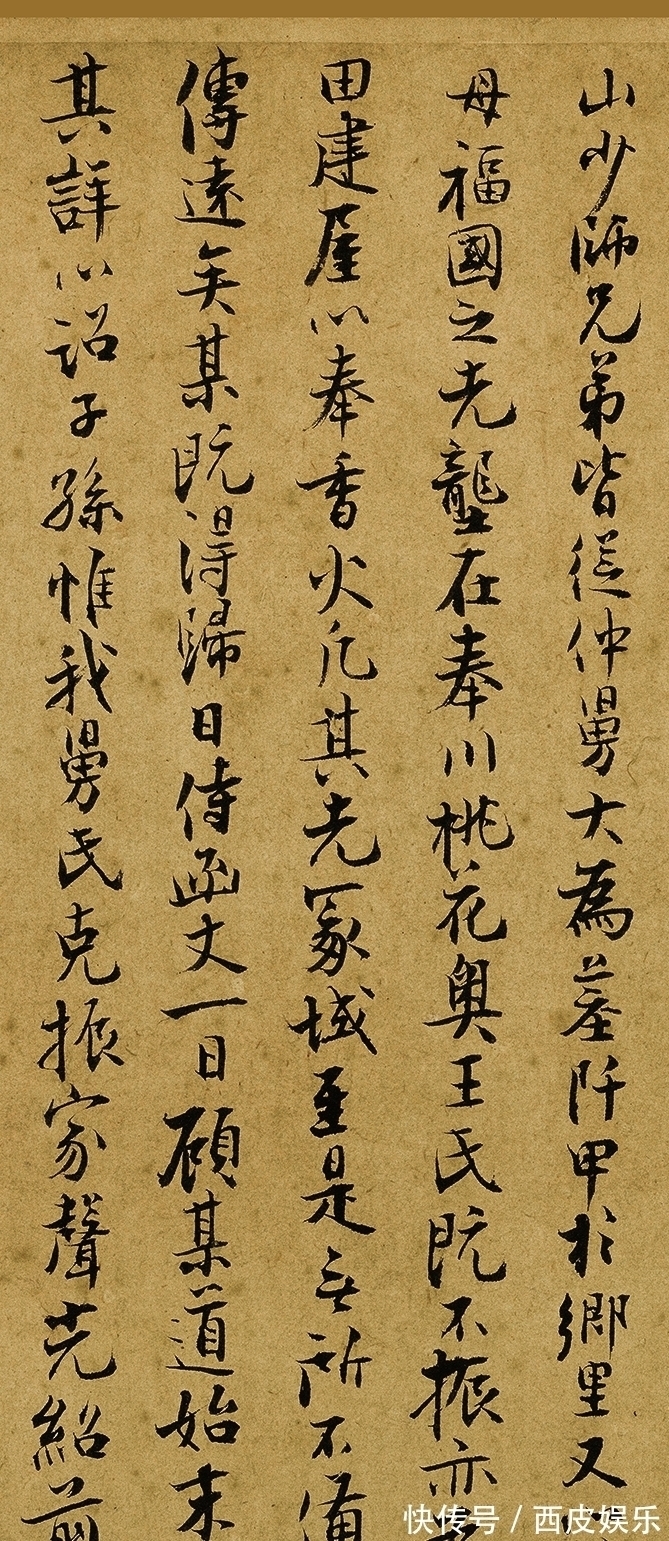 山少師兄弟皆從仲舅大為墓阡甲於鄉里又
母福國之先壟在奉川桃花奧王氏既不振亦
田建屋以奉香火凡其先冢域至是無所不備
傳遠矣某既得歸日侍函丈一日顧某道始末
其詳以詔子孫惟我舅氏克振家聲光紹前
快传号 / 西皮娱乐